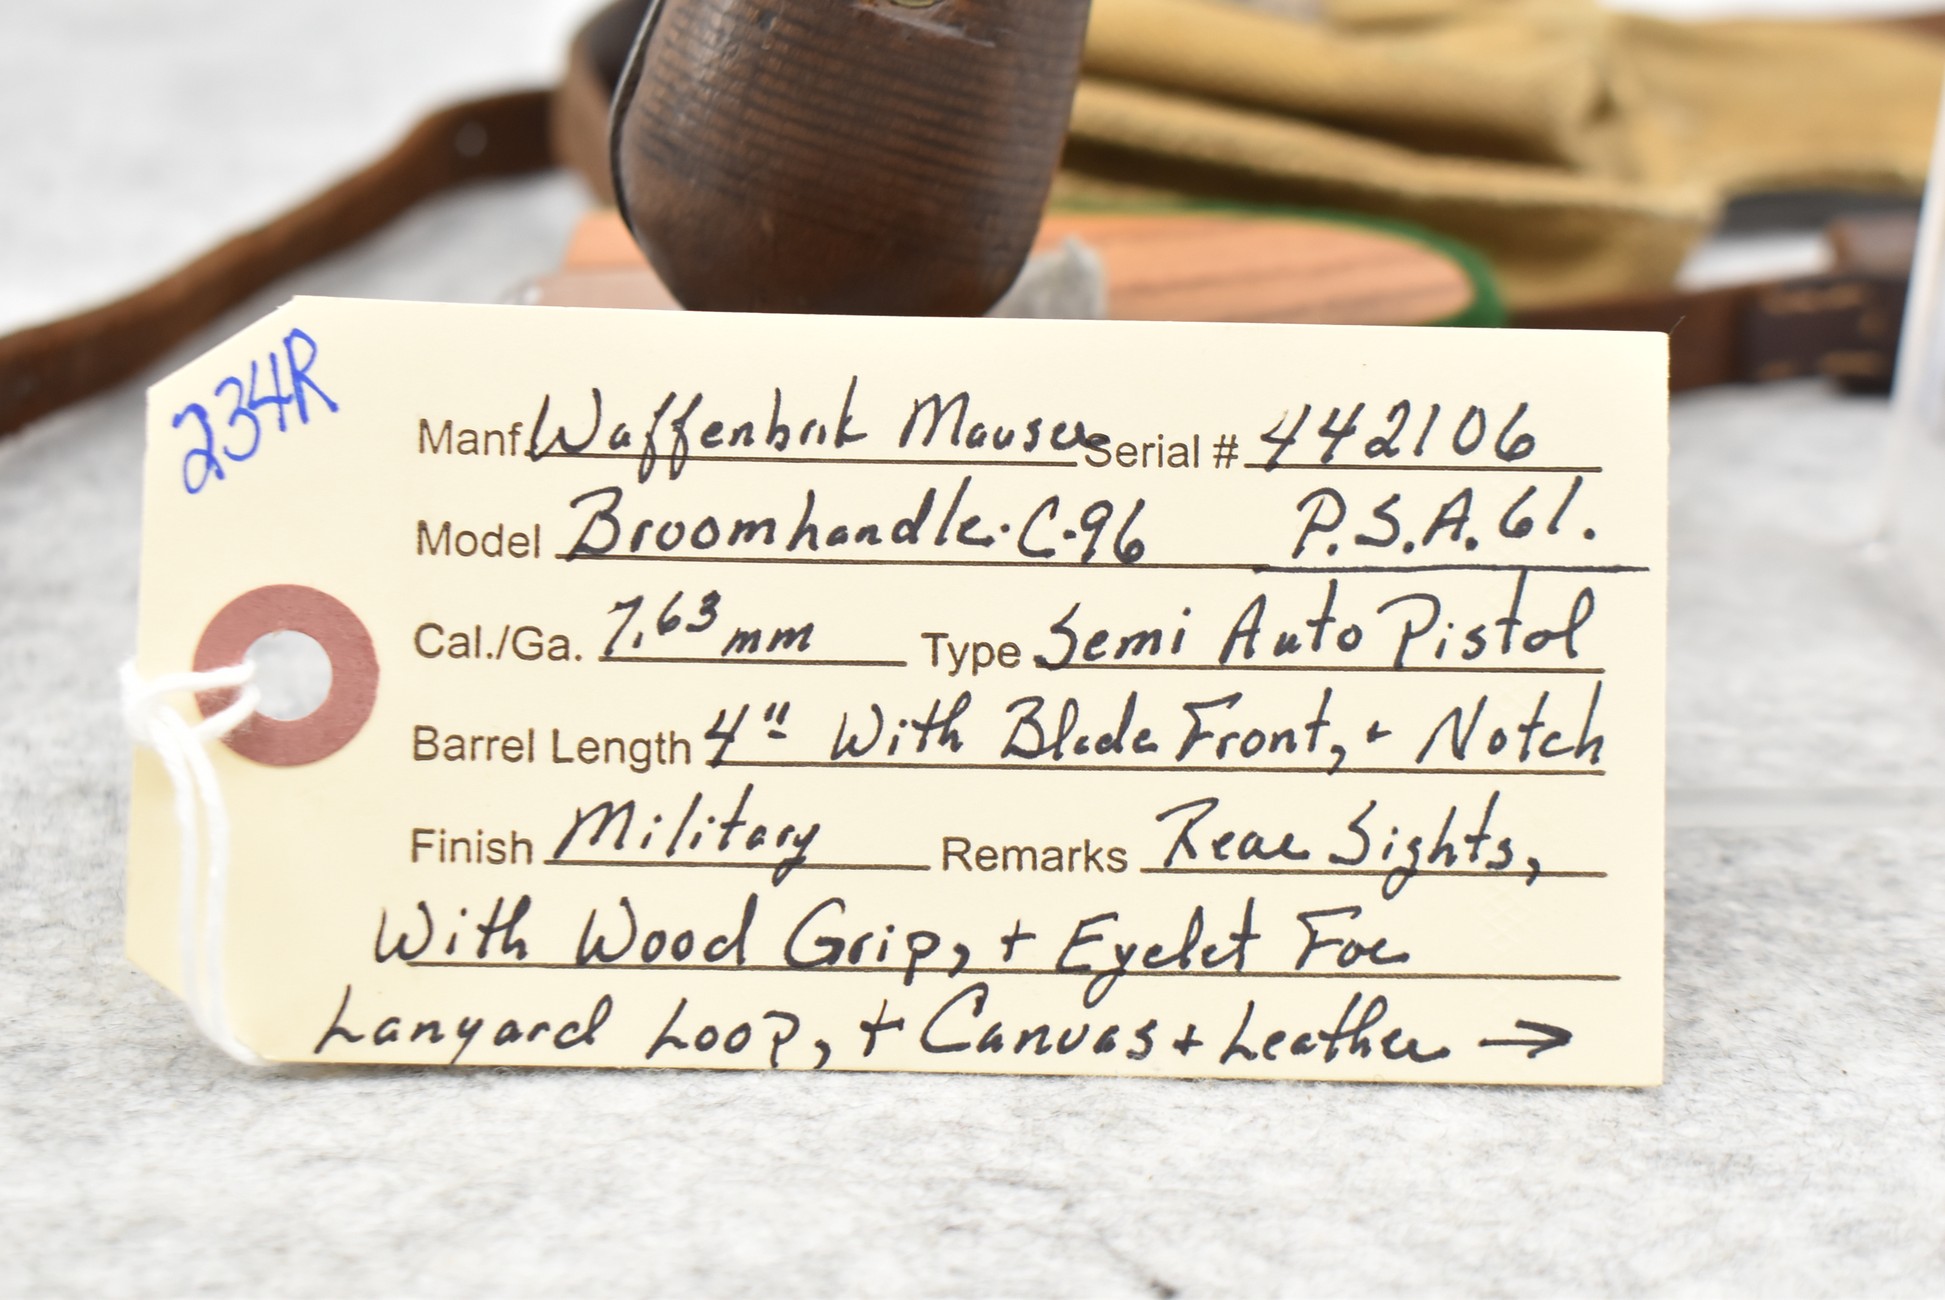 234R
Manf. Waffenbrik Mauser Serial # 442106
Model Broomhandle. C-96 P.S.A. 61.
Cal./Ga. 7,63 mm Type Semi Auto Pistol
Barrel Length 4" With Blade Front, + Notch
Finish Military Remarks Rear Sights,
With Wood Grip, + Eyelet For
Lanyard Loop, + Canvas + Leather →